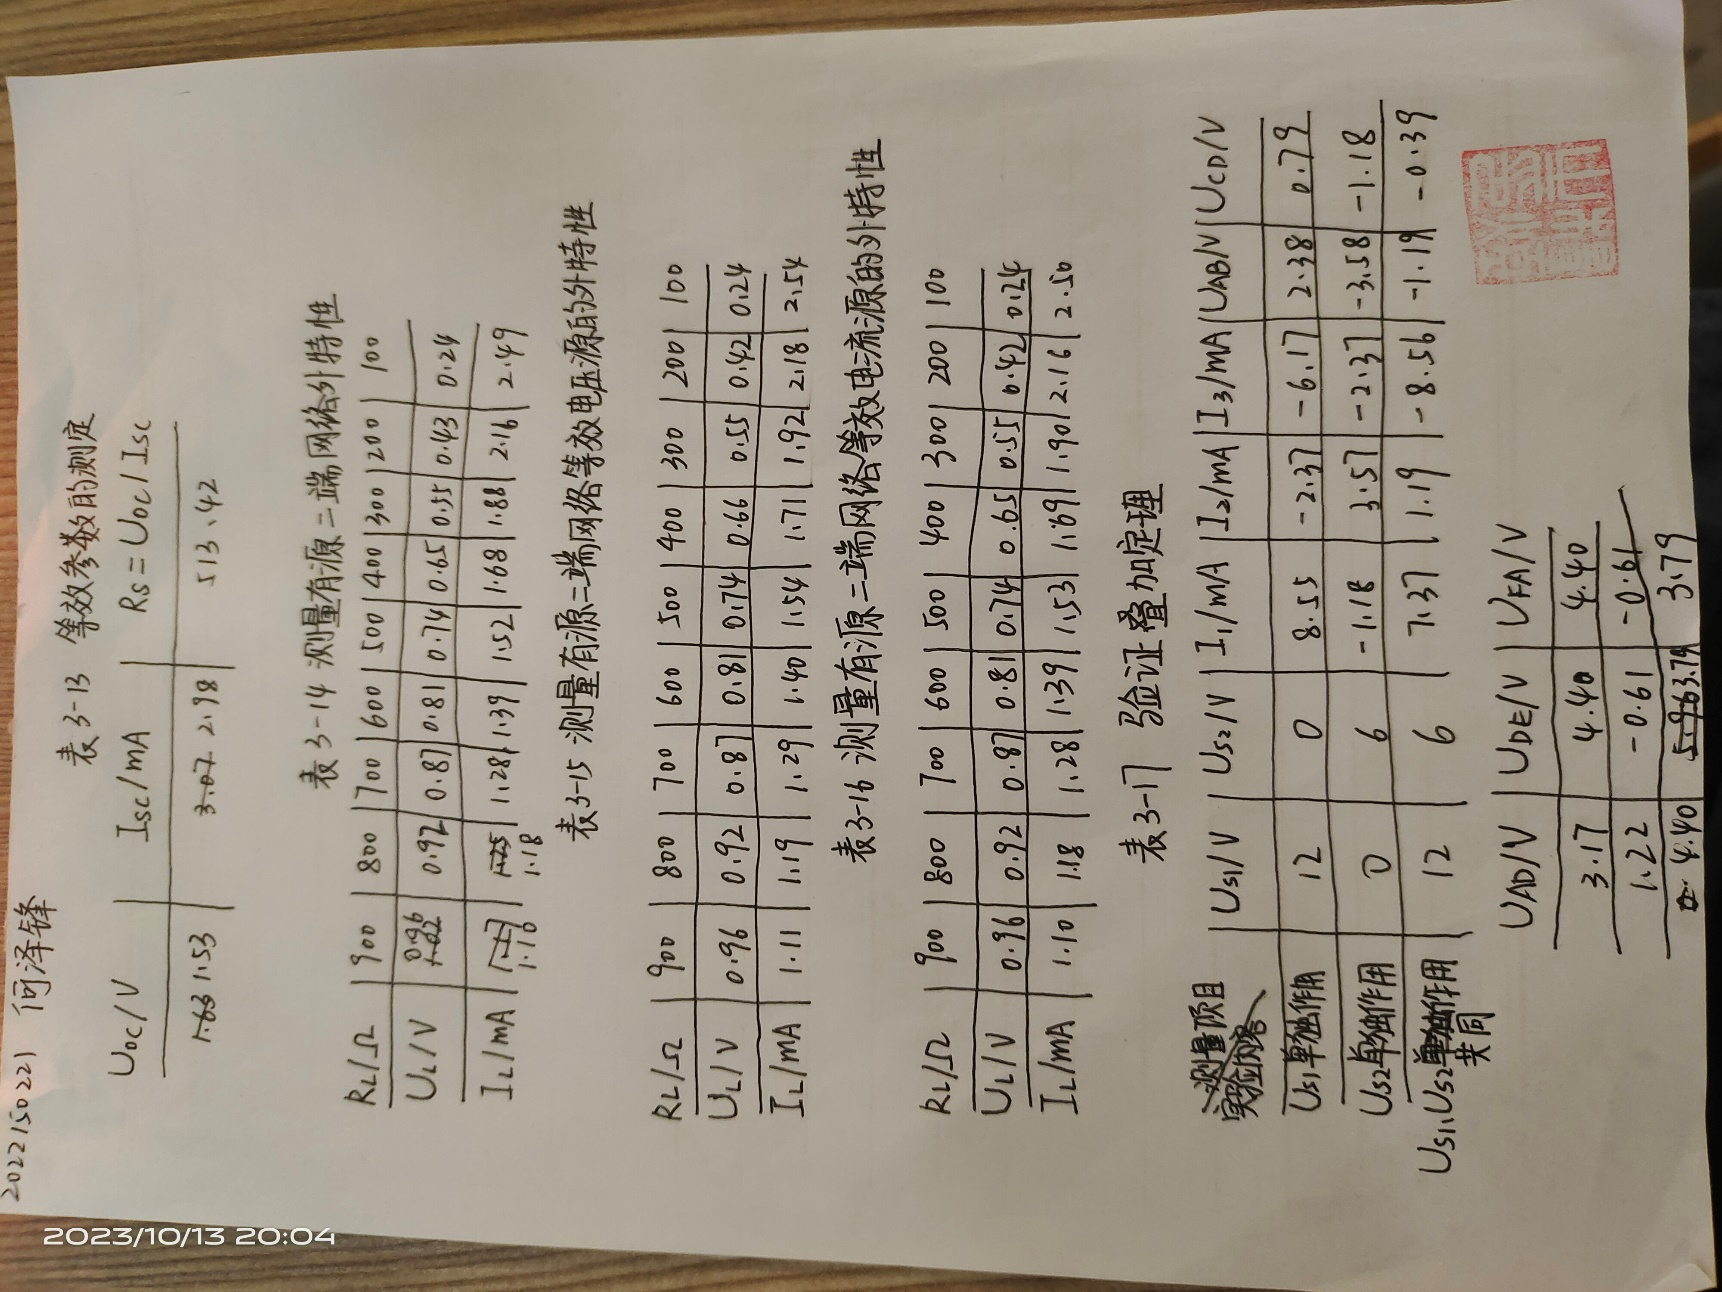 2022150221 何泽锋
表3-13 等效参数的测定
Uoc/V Isc/mA Rs=Uoc/Isc
1.63 1.53 3.07 2.98 513.42
表3-14 测量有源二端网络外特性
RL/Ω 900 800 700 600 500 400 300 200 100
UL/V 1.02 0.96 0.92 0.87 0.81 0.74 0.65 0.55 0.43 0.24
IL/mA 1.10 1.25 1.18 1.28 1.39 1.52 1.68 1.88 2.16 2.49
表3-15 测量有源二端网络等效电压源的外特性
RL/Ω 900 800 700 600 500 400 300 200 100
UL/V 0.96 0.92 0.87 0.81 0.74 0.66 0.55 0.42 0.24
IL/mA 1.11 1.19 1.29 1.40 1.54 1.71 1.92 2.18 2.54
表3-16 测量有源二端网络等效电流源的外特性
RL/Ω 900 800 700 600 500 400 300 200 100
UL/V 0.96 0.92 0.87 0.81 0.74 0.65 0.55 0.42 0.24
IL/mA 1.10 1.18 1.28 1.39 1.53 1.69 1.90 2.16 2.50
表3-17 验证叠加定理
测量项目
实验内容 Us1/V Us2/V I1/mA I2/mA I3/mA UAB/V UCD/V
Us1单独作用 12 0 8.55 -2.37 -6.17 2.38 0.79
Us2单独作用 0 6 -1.18 3.57 -2.37 -3.58 -1.18
Us1、Us2单独作用 12 6 7.37 1.19 -8.56 -1.19 -0.39
共同
UAD/V UDE/V UFA/V
3.17 4.40 4.40
1.22 -0.61 -0.61
4.40 5.96 3.79 3.79
2023/10/13 20:04